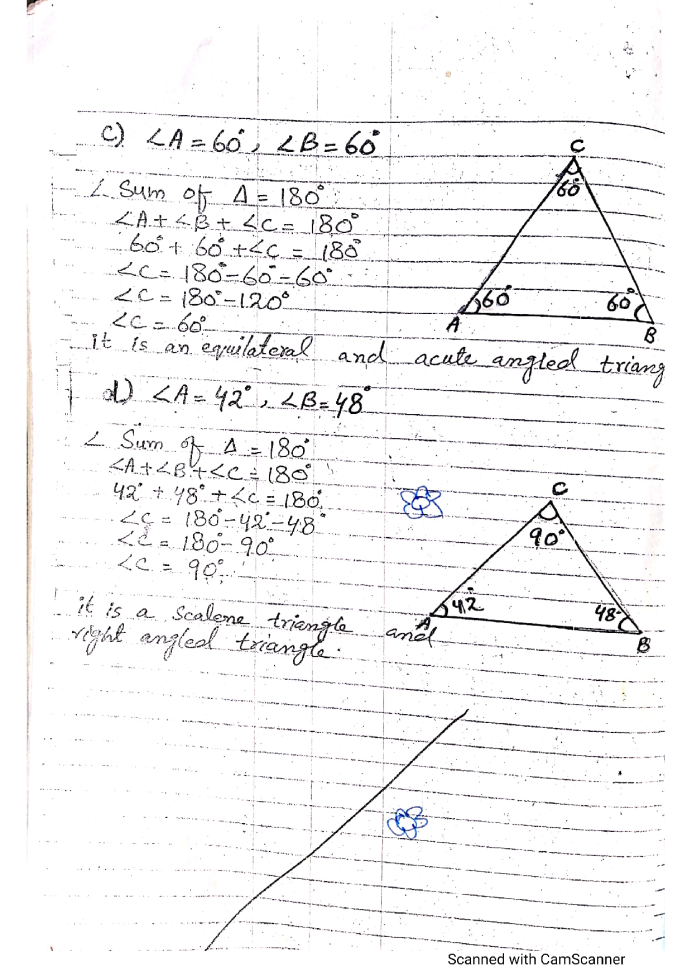 c) ∠A = 60°, ∠B = 60°
∠ Sum of Δ = 180°
∠A + ∠B + ∠C = 180°
60° + 60° + ∠C = 180°
∠C = 180° - 60° - 60°
∠C = 180° - 120°
∠C = 60°
C
60°
60°
60°
A
B
it is an equilateral and acute angled triang
d) ∠A = 42°, ∠B = 48°
∠ Sum of Δ = 180°
∠A + ∠B + ∠C = 180°
42° + 48° + ∠C = 180°
∠C = 180° - 42° - 48°
∠C = 180° - 90°
∠C = 90°
C
90°
42°
48°
A
B
it is a Scalene triangle and
right angled triangle.
Scanned with CamScanner